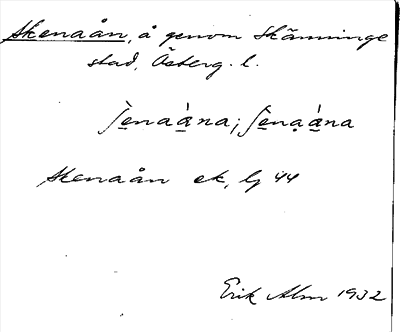 Skenaån, å genom Skänninge
stad, Österg. l.
ʃè̱naá̱na; ʃè̱nạá̱na
Skenaån ek, bj 44
Erik Alm 1932